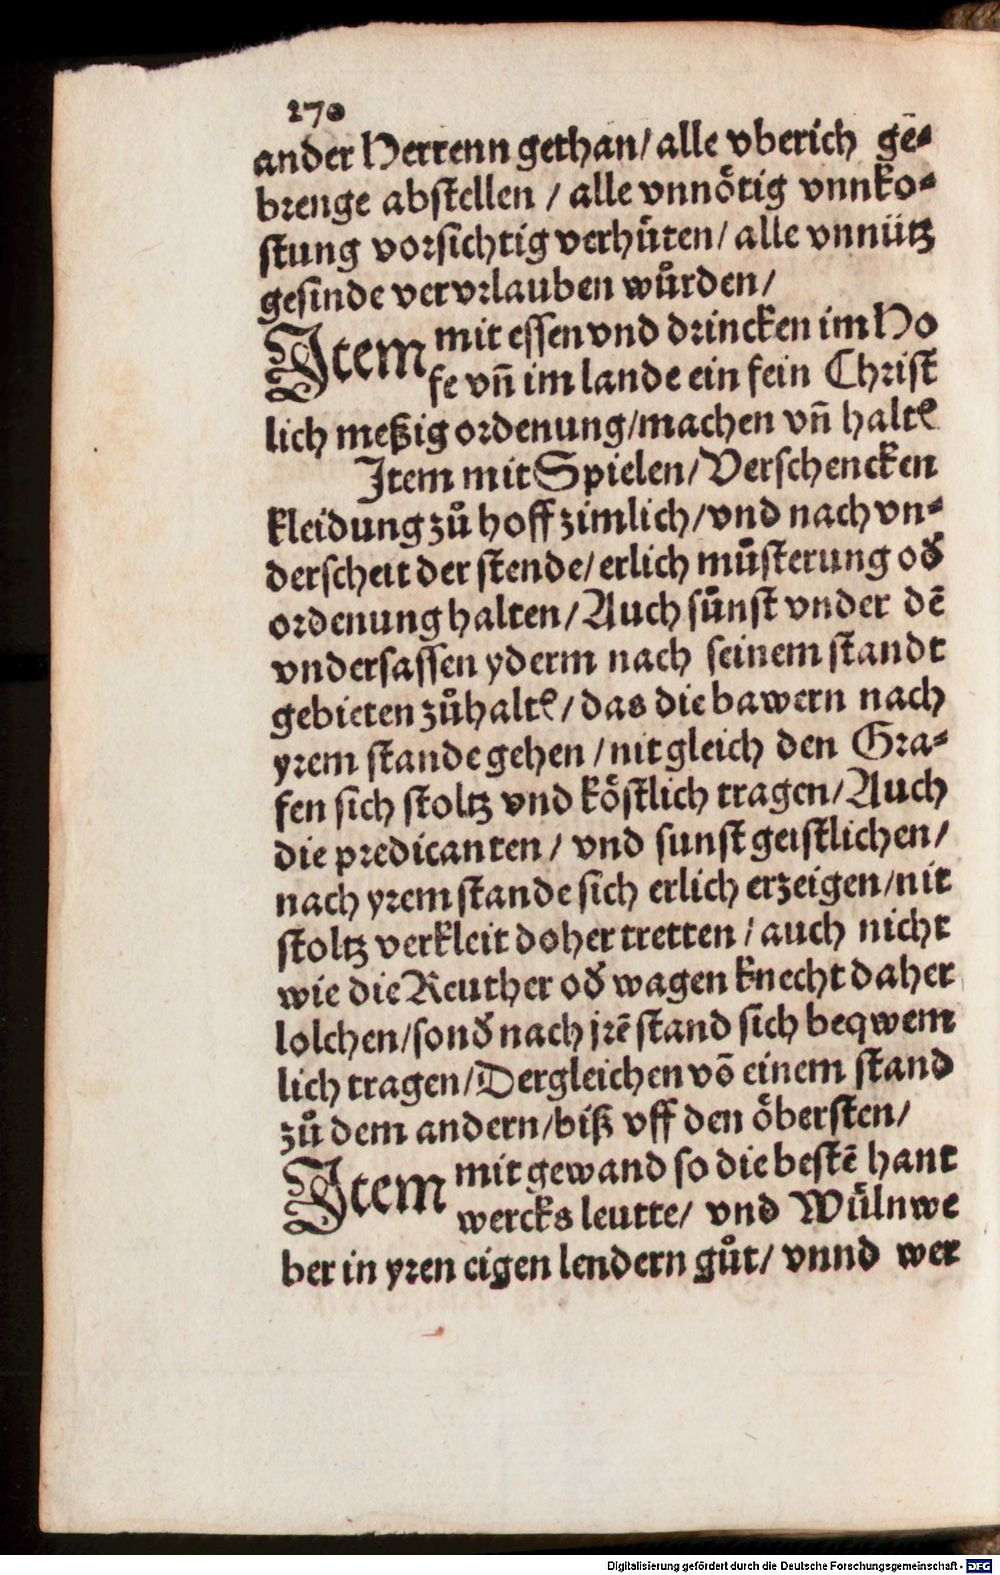 270
ander Herrenn gethan/ alle vberich gē⸗
brenge abstellen / alle vnnoͤtig vnnko⸗
stung vorsichtig verhuͤten/ alle vnnuͤtz
gesinde vervrlauben wuͤrden/
Item mit essen vnd drincken im Ho
fe vñ im lande ein fein Christ
lich meßig ordenung/machen vñ haltē
Item mit Spielen/Verschencken
kleidung zuͦ hoff zimlich/vnd nach vn⸗
derscheit der stende/ erlich muͤsterung od̄
ordenung halten/Auch suͤnst vnder dē
vndersassen yderm nach seinem standt
gebieten zuͦhaltē/das die bawern nach
yrem stande gehen /nit gleich den Gra⸗
fen sich stoltz vnd koͤstlich tragen/Auch
die predicanten/ vnd sunst geistlichen/
nach yrem stande sich erlich erzeigen/nit
stoltz verkleit doher tretten / auch nicht
wie die Reuther od̄ wagen knecht daher
lolchen/sond̄ nach jrē stand sich beqwem
lich tragen/Dergleichen vō einem stand
zuͦ dem andern/biß vff den oͤbersten/
Item mit gewand so die bestē hant
wercks leutte/ vnd Wuͤlnwe
ber in yren eigen lendern guͦt/ vnnd wer
Digitalisierung gefördert durch die Deutsche Forschungsgemeinschaft - DFG